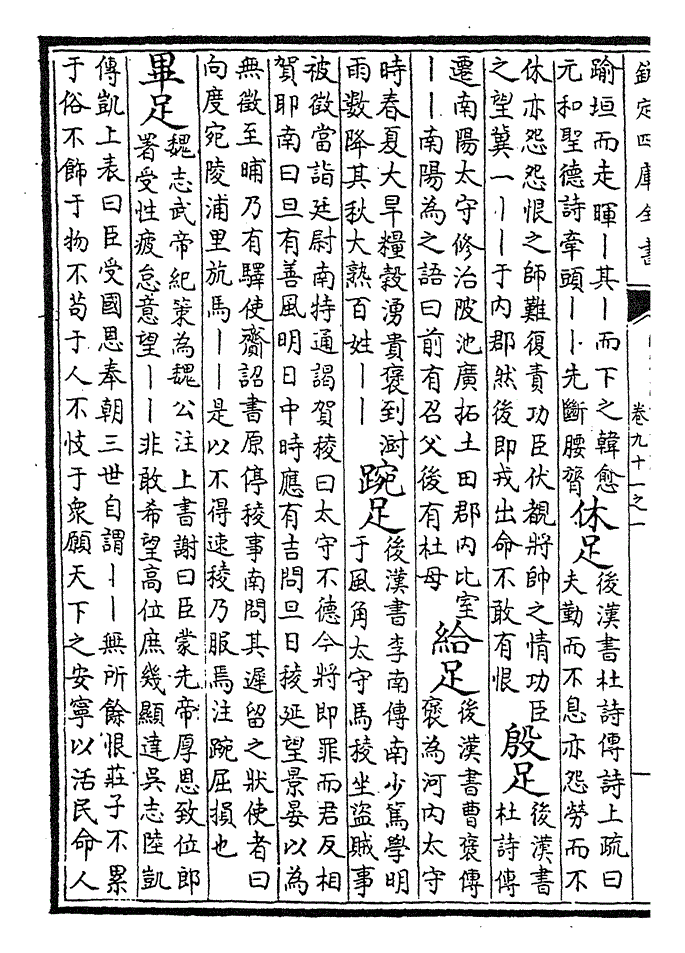 欽定四庫全書
卷九十一之一
踰垣而走暉丨其丨而下之韓愈
元和聖德詩牽頭丨丨先斷腰膂
休足
後漢書杜詩傳詩上疏曰
夫勤而不息亦怨勞而不
休亦怨怨恨之師難復責功臣伏觀將帥之情功臣
之望冀一丨丨于内郡然後即戎出命不敢有恨
殷足
後漢書
杜詩傳
遷南陽太守修治陂池廣拓土田郡内比室
丨丨南陽為之語曰前有召父後有杜母
給足
後漢書曹褒傳
褒為河内太守
時春夏大旱糧穀湧貴褒到澍
雨數降其秋大熟百姓丨丨
踠足
後漢書李南傳南少篤學明
于風角太守馬稜坐盜賊事
被徵當詣廷尉南特通謁賀稜曰太守不德今將即罪而君反相
賀耶南曰旦有善風明日中時應有吉問旦日稜延望景晏以為
無徵至晡乃有驛使齎詔書原停稜事南問其遲留之狀使者曰
向度宛陵浦里斻馬丨丨是以不得速稜乃服焉注踠屈損也
畢足
魏志武帝紀策為魏公注上書謝曰臣蒙先帝厚恩致位郎
署受性疲怠意望丨丨非敢希望高位庶幾顯達吳志陸凱
傳凱上表曰臣受國恩奉朝三世自謂丨丨無所餘恨莊子不累
于俗不飾于物不苟于人不忮于衆願天下之安寧以活民命人